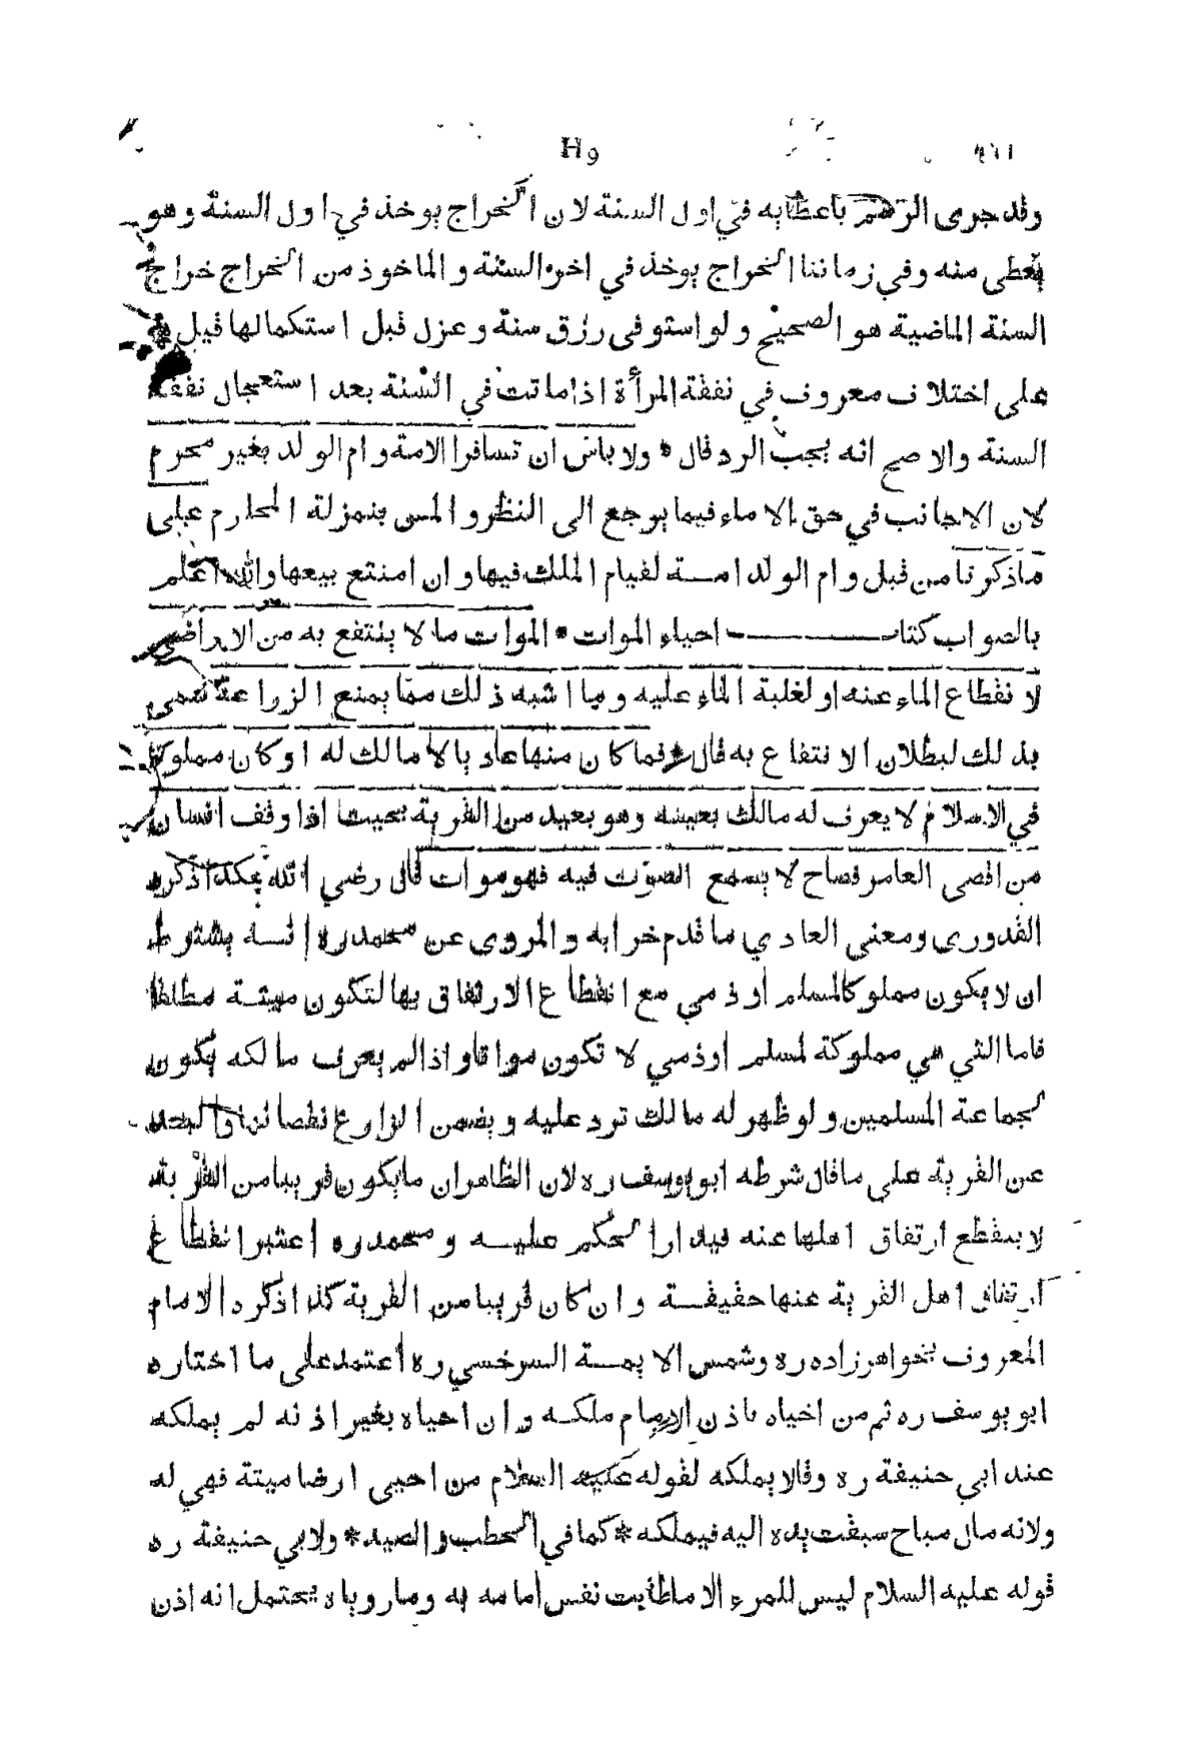 H9
وقد جرى الرسم باعطائه في اول السنة لان الخراج يوخذ في اول السنة وهو
يعطى منه وفي زماننا الخراج يوخذ في اخر السنة والماخوذ من الخراج خراج
السنة الماضية هو الصحيح ولو استوفى رزق سنة وعزل قبل استكمالها قيل هو
على اختلاف معروف في نفقة المرأة اذا ماتت في السنة بعد استعجال نفقة
السنة والاصح انه يجب الرد قال * ولا باس ان تسافر الامة وام الولد بغير محرم
لان الاجانب في حق الاماء فيما يرجع الى النظر والمس بمنزلة المحارم على
ما ذكرنا من قبل وام الولد امة لقيام الملك فيها وان امتنع بيعها والله اعلم
بالصواب كتاب احياء الموات * الموات ما لا ينتفع به من الاراضي
لانقطاع الماء عنه او لغلبة الماء عليه وما اشبه ذلك مما يمنع الزراعة سمى
بذلك لبطلان الانتفاع به قال * فما كان منها عاديا لا مالك له او كان مملوكا
في الاسلام لا يعرف له مالك بعينه وهو بعيد من القرية بحيث اذا وقف انسان
من اقصى العامر فصاح لا يسمع الصوت فيه فهو موات قال رضي الله هكذا ذكره
القدوري ومعنى العادي ما قدم خرابه والمروى عن محمد ره انه يشترط
ان لا يكون مملوكا لمسلم او ذمي مع انقطاع الارتفاق بها لتكون ميتة مطلقا
فاما التي هي مملوكة لمسلم او ذمي لا تكون مواتا واذا لم يعرف مالكه يكون
لجماعة المسلمين ولو ظهر له مالك ترد عليه ويضمن الزارع نقصانها والبعد
عن القرية على ما قال شرطه ابو يوسف ره لان الظاهر ان ما يكون قريبا من القرية
لا ينقطع ارتفاق اهلها عنه فيدار الحكم عليه ومحمد ره اعتبر انقطاع
ارتفاق اهل القرية عنها حقيقة وان كان قريبا من القرية كذا ذكره الامام
المعروف بخواهرزاده ره وشمس الايمة السرخسي ره اعتمد على ما اختاره
ابو يوسف ره ثم من احياه باذن الامام ملكه وان احياه بغير اذنه لم يملكه
عند ابي حنيفة ره وقالا يملكه لقوله عليه السلام من احيى ارضا ميتة فهي له
ولانه مال مباح سبقت يده اليه فيملكه * كما في الحطب والصيد * ولابي حنيفة ره
قوله عليه السلام ليس للمرء الا ما طابت نفس امامه به وما روياه يحتمل انه اذن